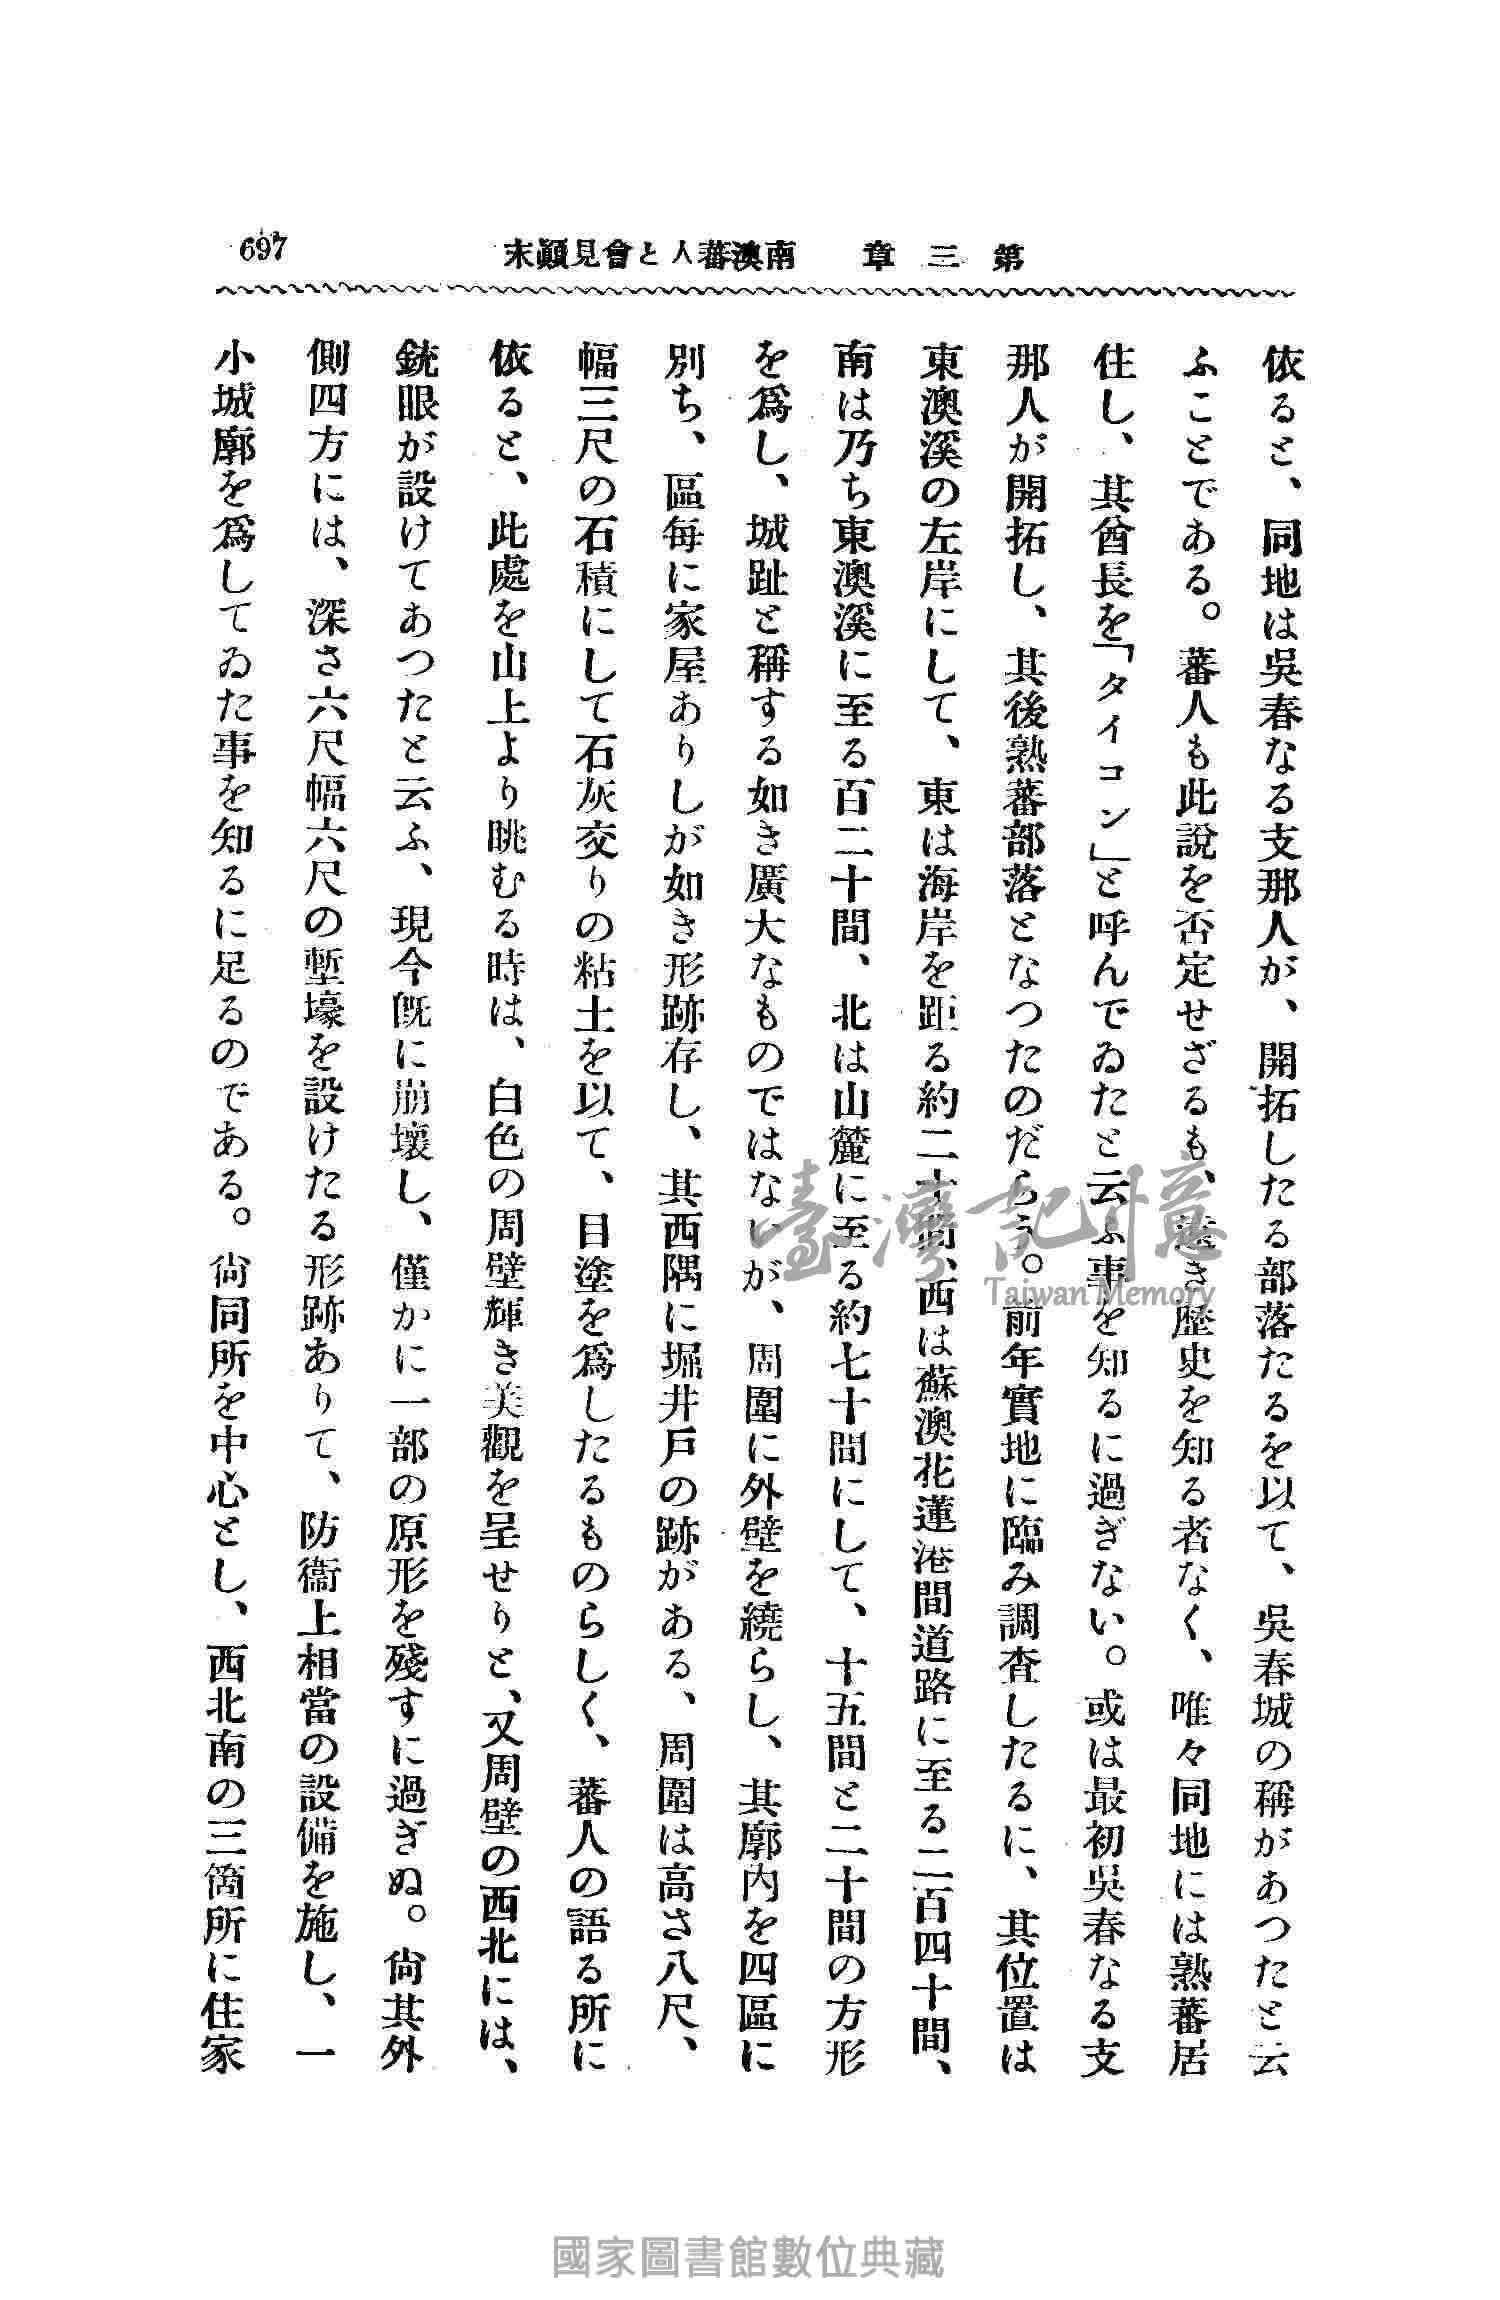 第三章 南澳蕃人と會見顚末
697
依ると、同地は吳春なる支那人が、開拓したる部落たるを以て、吳春城の稱があつたと云
ふことである。蕃人も此說を否定せざるも、遠き歷史を知る者なく、唯々同地には熟蕃居
住し、其酋長を「タイコン」と呼んでゐたと云ふ事を知るに過ぎない。或は最初吳春なる支
那人が開拓し、其後熟蕃部落となつたのだらう。前年實地に臨み調査したるに、其位置は
東澳溪の左岸にして、東は海岸を距る約二十間、西は蘇澳花蓮港間道路に至る二百四十間、
南は乃ち東澳溪に至る百二十間、北は山麓に至る約七十間にして、十五間と二十間の方形
を爲し、城趾と稱する如き廣大なものではないが、周圍に外壁を繞らし、其廓內を四區に
別ち、區每に家屋ありしが如き形跡存し、其西隅に堀井戶の跡がある、周圍は高さ八尺、
幅三尺の石積にして石灰交りの粘土を以て、目塗を爲したるものらしく、蕃人の語る所に
依ると、此處を山上より眺むる時は、白色の周壁輝き美觀を呈せりと、又周壁の西北には、
銃眼が設けてあつたと云ふ、現今旣に崩壞し、僅かに一部の原形を殘すに過ぎぬ。尙其外
側四方には、深さ六尺幅六尺の塹壕を設けたる形跡ありて、防衞上相當の設備を施し、一
小城廓を爲してゐた事を知るに足るのである。尙同所を中心とし、西北南の三箇所に住家
臺灣記憶
Taiwan Memory
國家圖書館數位典藏